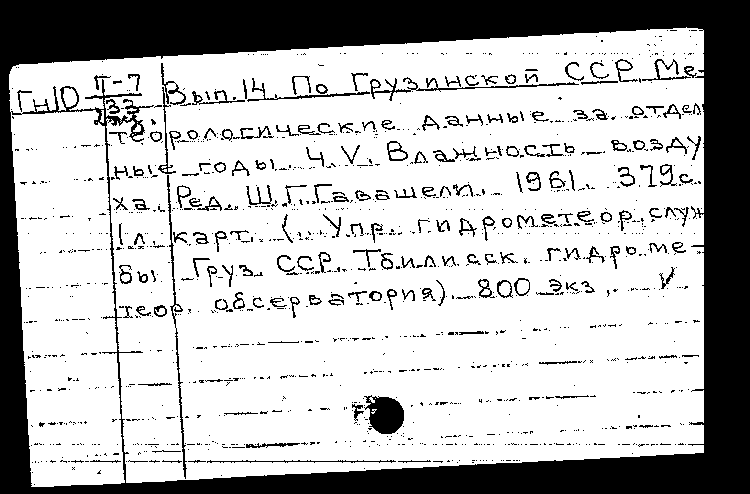 Гн10 П-7 Вып. 14. По Грузинской ССР. Ме-
33
2 экз.
теорологические данные за отдель
ные годы. Ч. V. Влажность возду
ха. Ред. Ш.Г.Гавашели. 1961. 379с.
1л. карт. (. Упр. гидрометеор. служ
бы Груз. ССР. Тбилисск. гидроме-
теор. обсерватория). 800 экз.